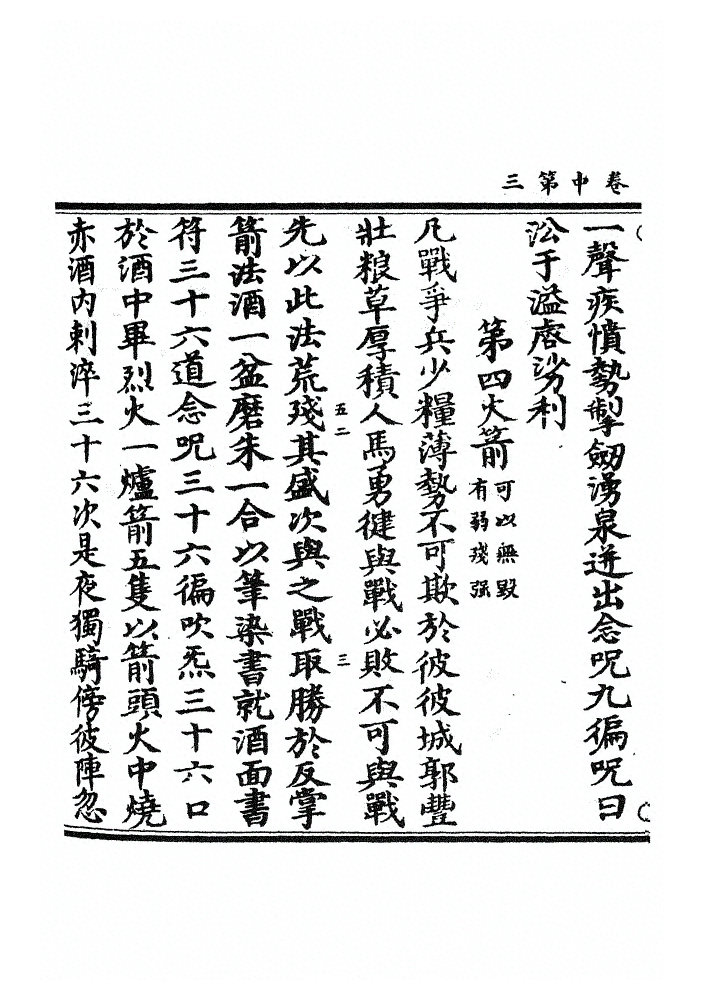 卷中第三
一聲疾憤勢掣劒湧泉迸出念呪九徧呪曰
于溢唇沙利
第四火箭 可以無毀有弱殘強
凡戰爭兵少糧薄勢不可欺於彼彼城郭豐
壯粮草厚積人馬勇健與戰必敗不可與戰
先以此法荒殘其盛次與之戰取勝於反掌
五二 三
箭法酒一盆磨朱一合以筆染書就酒面書
符三十六道念呪三十六徧吹炁三十六口
於酒中畢烈火一爐箭五隻以箭頭火中燒
赤酒内剌淬三十六次是夜獨騎傍彼陣忽